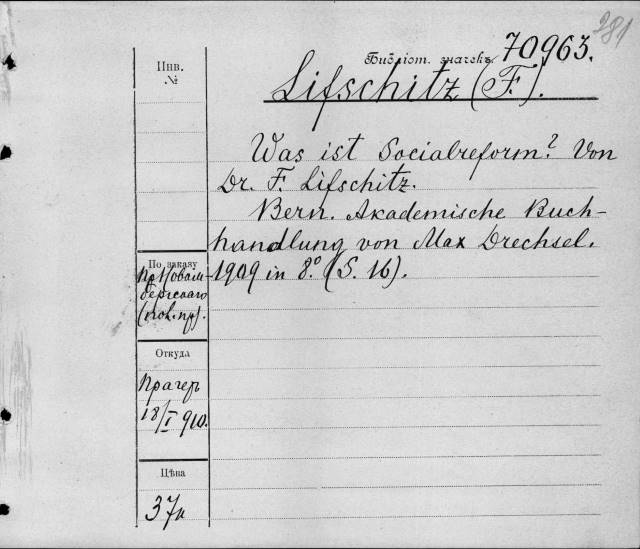 281
Библіот. значекъ 70963.
Инв.
№
Lifschitz (F.).
Was ist Socialreform? Von
Dr. F. Lifschitz.
Bern. Akademische Buch-
handlung von Max Drechsel.
1909 in 8° (S. 16).
По заказу
Откуда
Прагеръ
18/I 910.
Цѣна
37к